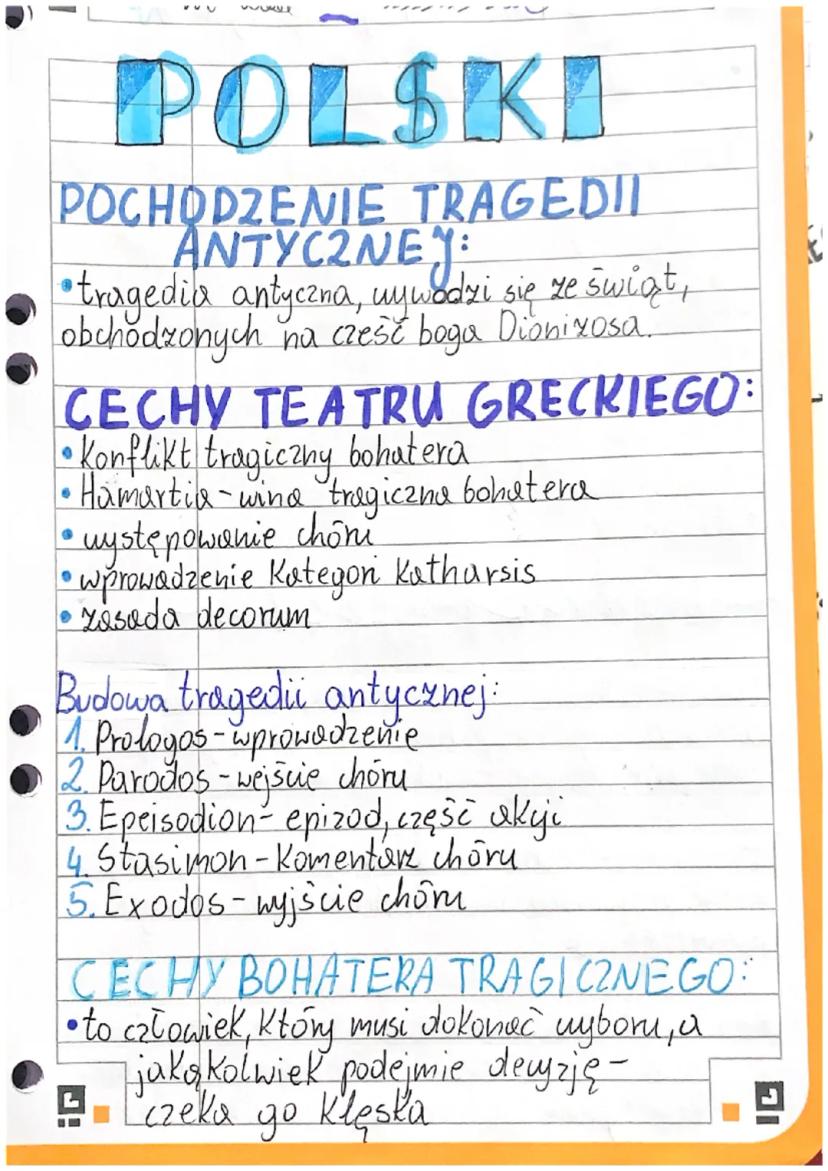 POLSKI
POCHODZENIE TRAGEDII
ANTYCZNEJ:
•tragedia antyczna, wywodzi się ze świąt,
obchodzonych na cześć boga Dionizosa.
CECHY TEATRU GRECKIEGO:
• konflikt tragiczny bohatera
• Hamartia - wina tragiczna bohatera
• występowanie chóru
• wprowadzenie kategori katharsis
• zasada decorum
Budowa tragedii antycznej:
1. Prologos - wprowadzenie
2. Parodos - wejście chóru
3. Epeisodion - epizod, część akcji
4. Stasimon - komentarz chóru
5. Exodos - wyjście chóru
CECHY BOHATERA TRAGICZNEGO:
•to człowiek, który musi dokonać wyboru, a
jakąkolwiek podejmie decyzję -
czeka go klęska